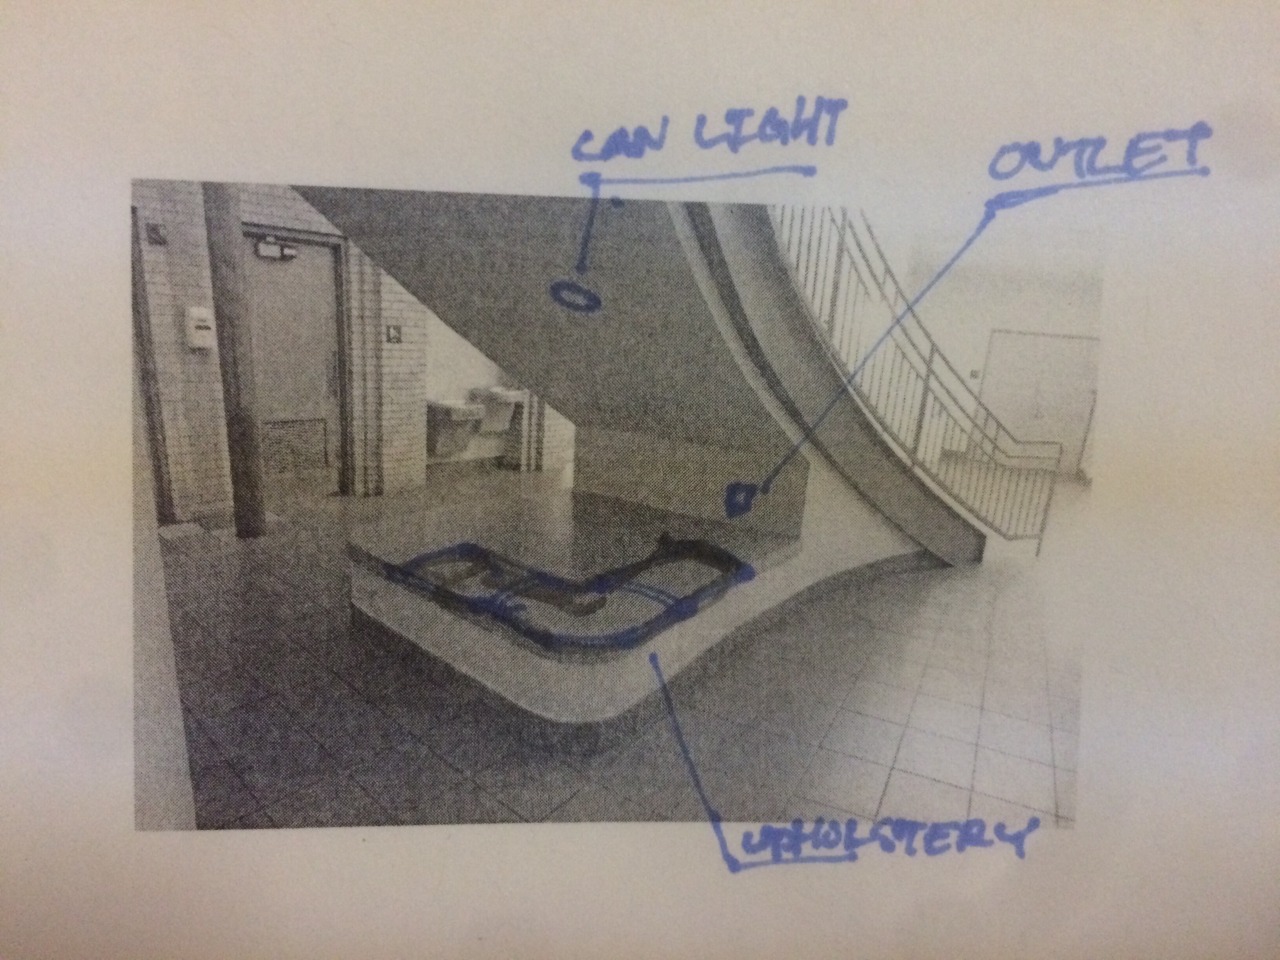 CAN LIGHT
OUTLET
UPHOLSTERY